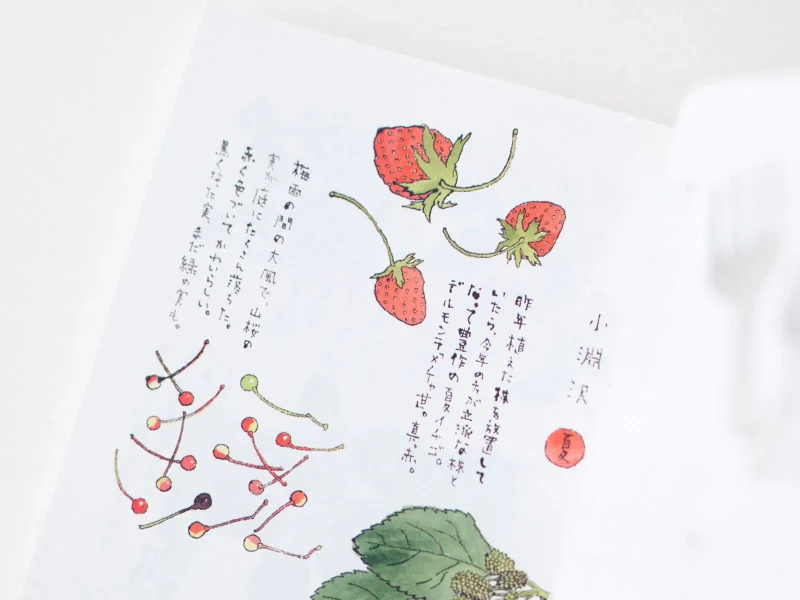 小淵沢
夏
昨年植えた株を放置して
いたら、今年の方が立派な株と
なって豊作の夏イチゴ。
デルモンテメチャ苺。真っ赤。
梅雨の間の大風で、山桜の
実が庭にたくさん落ちた。
赤く色づいてかわいらしい。
黒くなった実、まだ緑の実も。